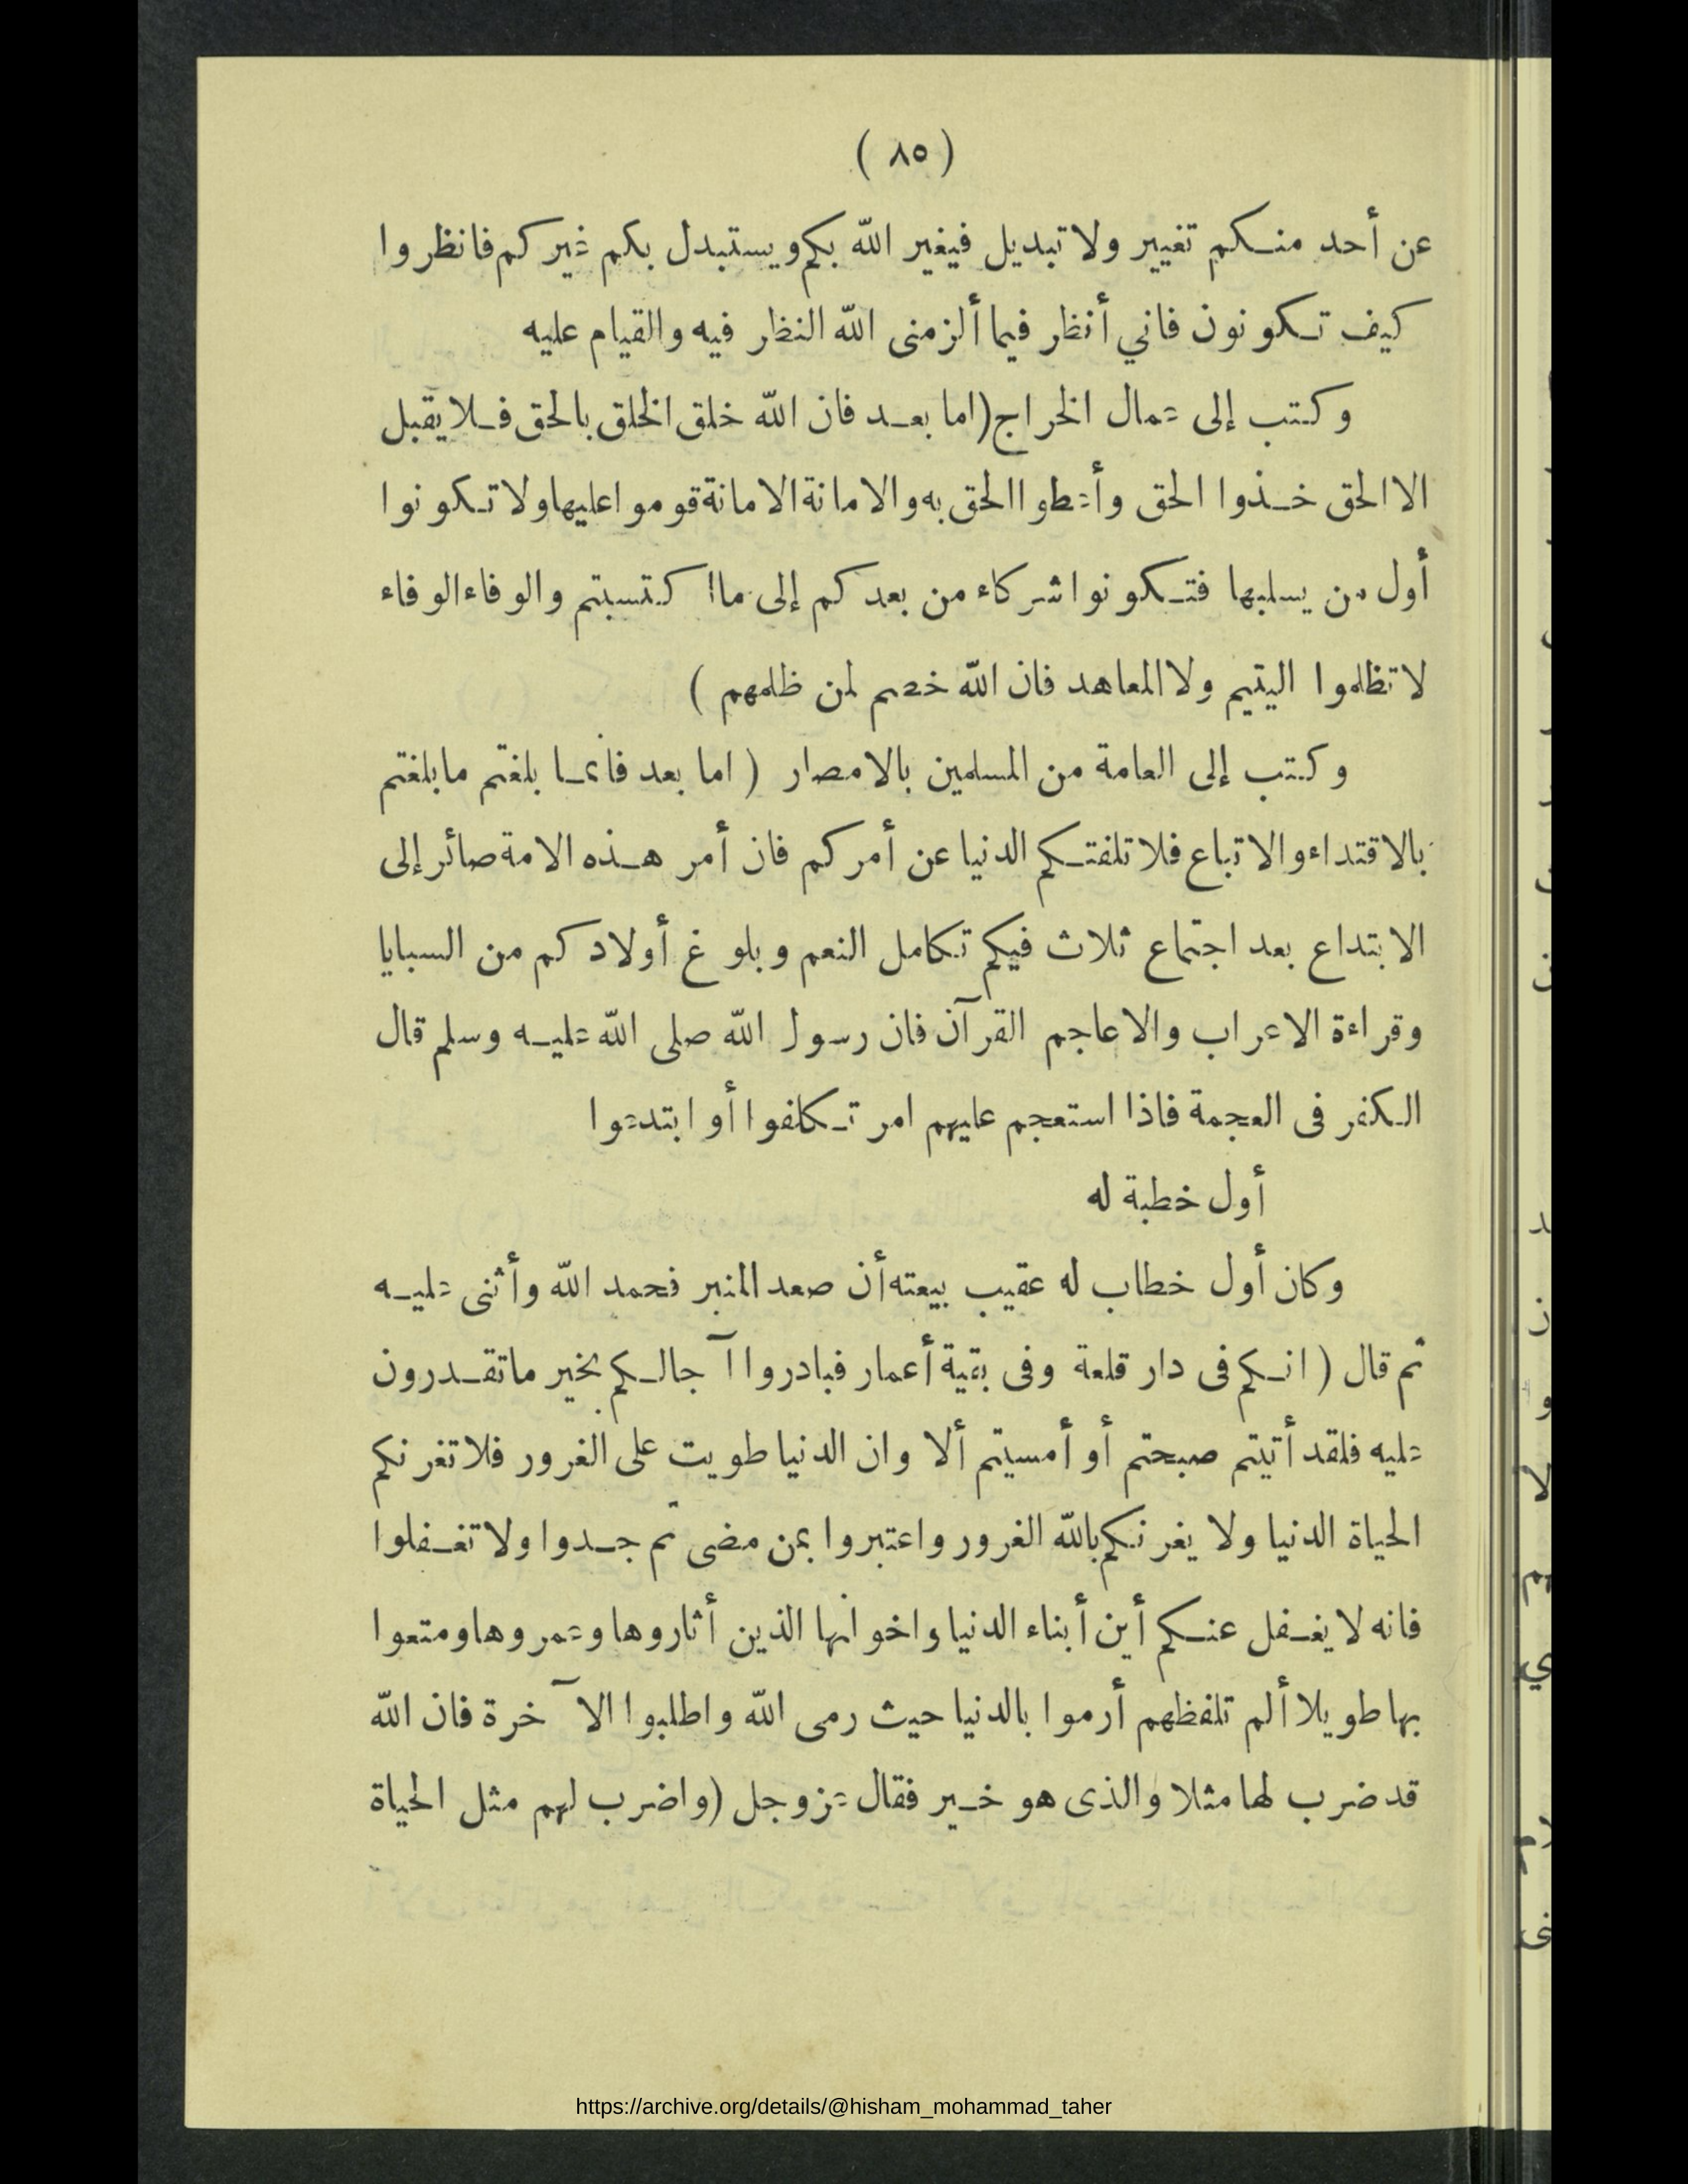 ( ٨٥ )
عن أحد منكم تغيير ولا تبديل فيغير الله بكم ويستبدل بكم غيركم فانظروا
كيف تكونون فاني أنظر فيما ألزمنى الله النظر فيه والقيام عليه
وكتب إلى عمال الخراج (اما بعد فان الله خلق الخلق بالحق فلا يقبل
الا الحق خذوا الحق وأعطوا الحق به والامانة الامانة قوموا عليها ولا تكونوا
أول من يسلبها فتكونوا شركاء من بعدكم إلى ما اكتسبتم والوفاء الوفاء
لا تظلموا اليتيم ولا المعاهد فان الله خصم لمن ظلمهم )
وكتب إلى العامة من المسلمين بالامصار ( اما بعد فانما بلغتم ما بلغتم
بالاقتداء والاتباع فلا تلفتكم الدنيا عن أمركم فان أمر هذه الامة صائر إلى
الابتداع بعد اجتماع ثلاث فيكم تكامل النعم وبلوغ أولادكم من السبايا
وقراءة الاعراب والاعاجم القرآن فان رسول الله صلى الله عليه وسلم قال
الكفر فى العجمة فاذا استعجم عليهم امر تكلفوا أو ابتدعوا
أول خطبة له
وكان أول خطاب له عقيب بيعته أن صعد المنبر فحمد الله وأثنى عليه
ثم قال ( انكم فى دار قلعة وفى بقية أعمار فبادروا آجالكم بخير ما تقدرون
عليه فلقد أتيتم صبحتم أو أمسيتم ألا وان الدنيا طويت على الغرور فلا تغرنكم
الحياة الدنيا ولا يغرنكم بالله الغرور واعتبروا بمن مضى ثم جدوا ولا تغفلوا
فانه لا يغفل عنكم أين أبناء الدنيا واخوانها الذين أثاروها وعمروها ومتعوا
بها طويلا ألم تلفظهم أرموا بالدنيا حيث رمى الله واطلبوا الآخرة فان الله
قد ضرب لها مثلا والذى هو خير فقال عزوجل (واضرب لهم مثل الحياة
https://archive.org/details/@hisham_mohammad_taher